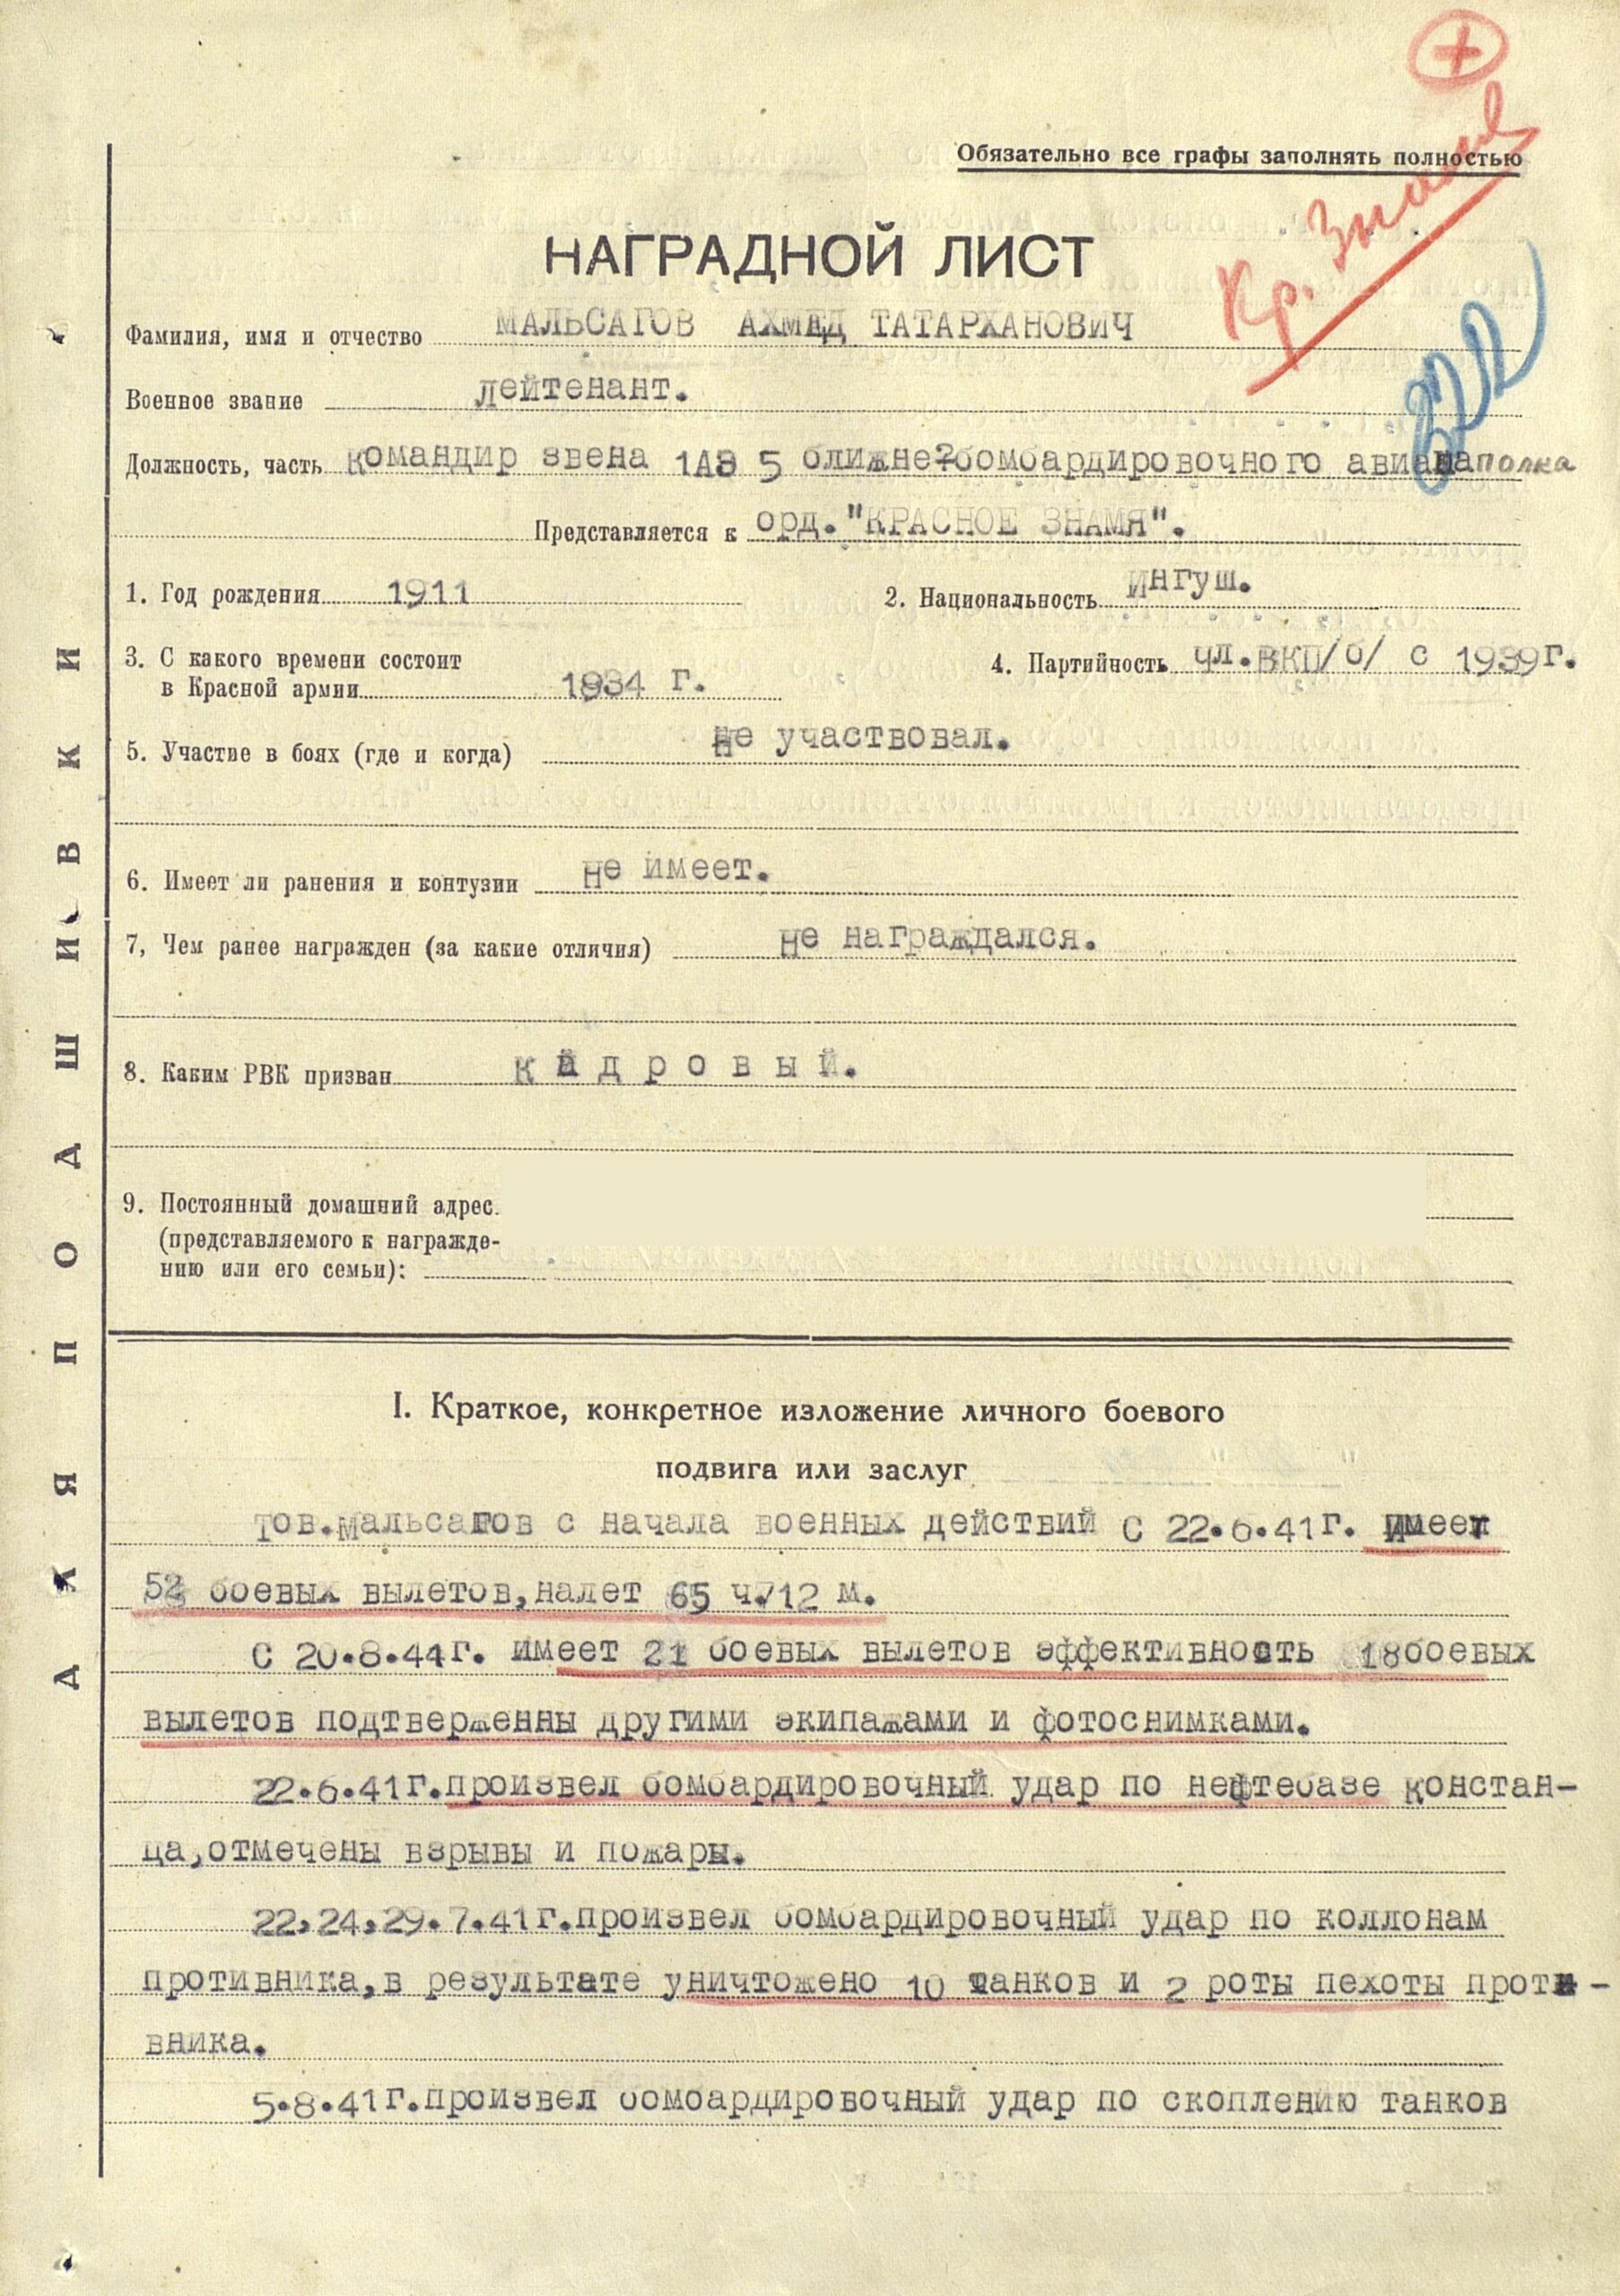 Кр. Знамя
Обязательно все графы заполнять полностью
НАГРАДНОЙ ЛИСТ
Фамилия, имя и отчество МАЛЬСАГОВ АХМЕД ТАТАРХАНОВИЧ
Военное звание лейтенант.
Должность, часть командир звена 1АЭ 5 ближне-бомбардировочного авиаполка
Представляется к орд."КРАСНОЕ ЗНАМЯ".
1. Год рождения 1911 2. Национальность ингуш.
3. С какого времени состоит
в Красной армии 1934 г. 4. Партийность чл.ВКП/б/ с 1939г.
5. Участие в боях (где и когда) не участвовал.
6. Имеет ли ранения и контузии не имеет.
7, Чем ранее награжден (за какие отличия) не награждался.
8. Каким РВК призван кадровый.
9. Постоянный домашний адрес.
(представляемого к награжде-
нию или его семьи):
I. Краткое, конкретное изложение личного боевого
подвига или заслуг
Тов.Мальсагов с начала военных действий с 22.6.41г. имеет
52 боевых вылетов,налет 65 ч./12 м.
С 20.8.41г. имеет 21 боевых вылетов эффективность 18боевых
вылетов подтверженны другими экипажами и фотоснимками.
22.6.41г.произвел бомбардировочный удар по нефтебазе Констан-
ца,отмечены взрывы и пожары.
22,24,29.7.41г.произвел бомбардировочный удар по коллонам
противника,в результате уничтожено 10 танков и 2 роты пехоты проти-
вника.
5.8.41г.произвел бомбардировочный удар по скоплению танков
ДЛЯ ПОДШИВКИ